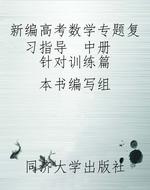 新编高考数学专题复
习指导　中册
针对训练篇
本书编写组
同济大学出版社